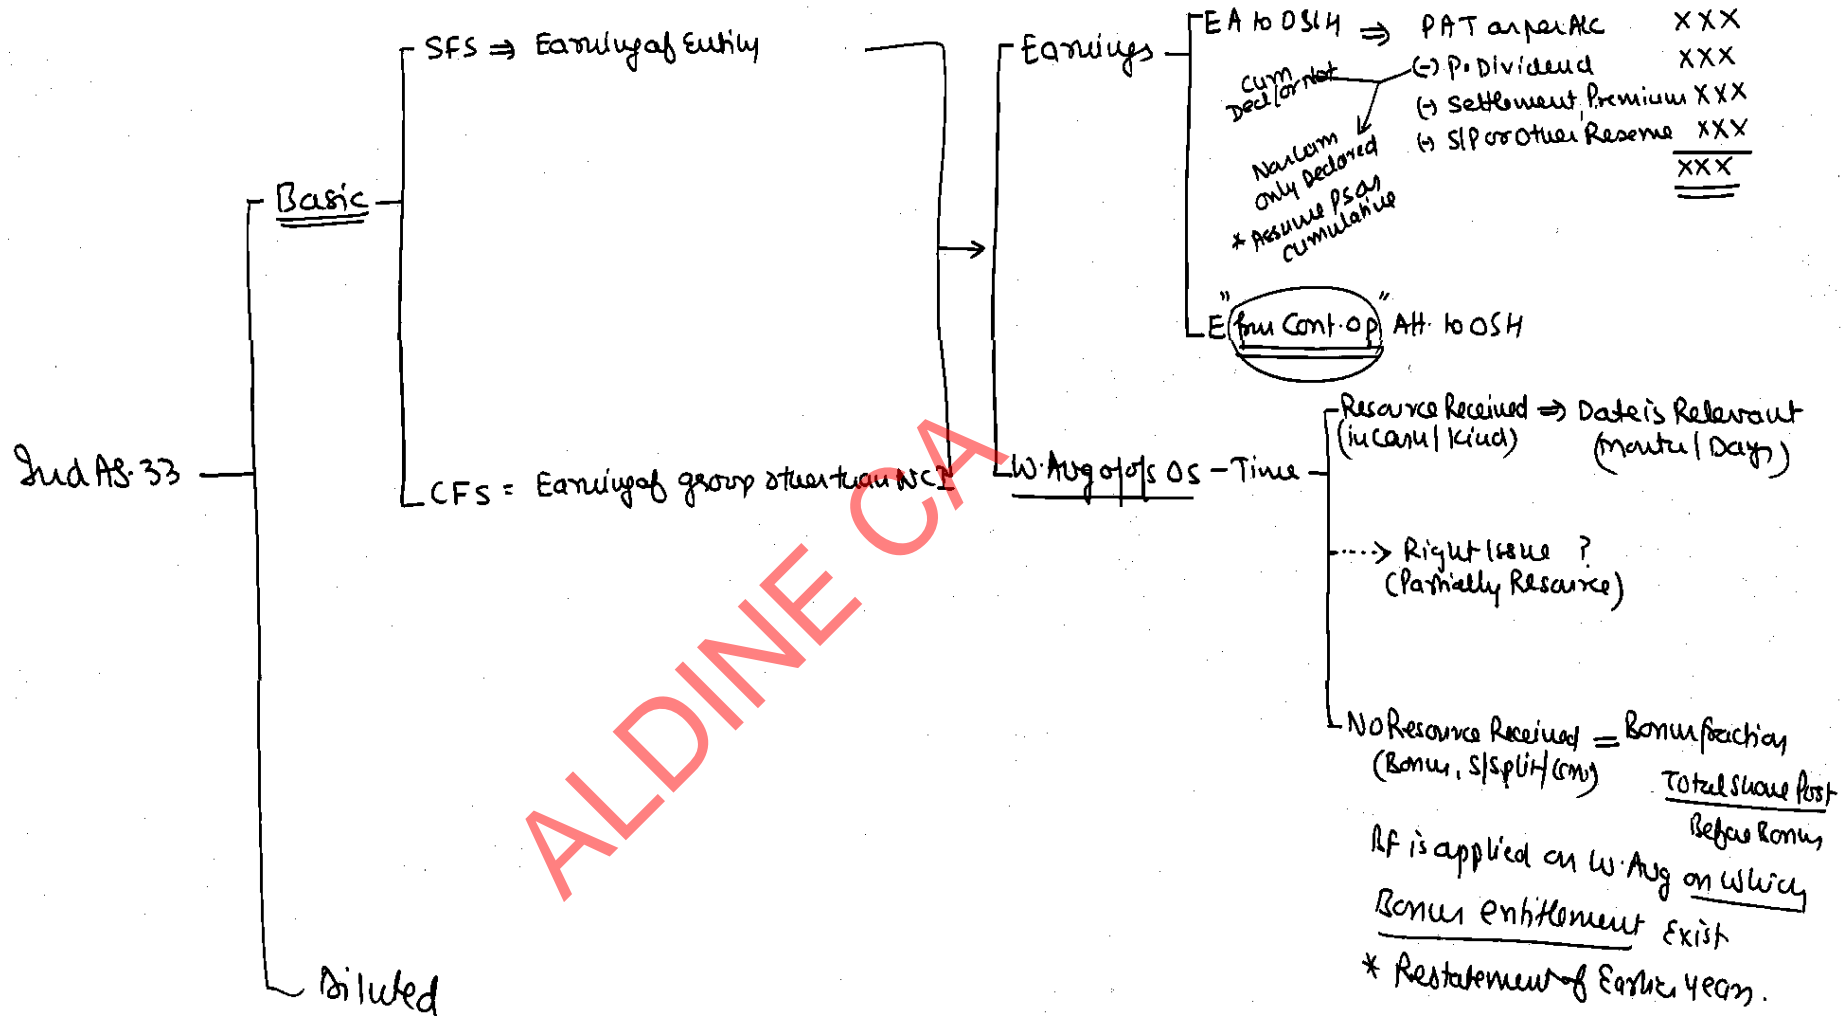 Ind AS.33
Basic
SFS ⇒ Earning of Entity
CFS = Earning of group other than NCI
Diluted
Earnings
EA to OSH ⇒ PAT as per A/c XXX
(-) P. Dividend XXX
(-) Settlement Premium XXX
(-) S/P or Other Reserve XXX
XXX
Cum
Decl/or Not
Non Cum
only Declared
* Assume PS as
cumulative
E "from Cont. Op" Att. to OSH
W. Avg o/f o/s OS - Time
Resource Received ⇒ Date is Relevant
(in Cash / Kind) (Month / Days)
Right Issue ?
(Partially Resource)
No Resource Received = Bonus fraction
(Bonus, S/Split/
Total Share Post
Before Bonus
BF is applied on W. Avg on which
Bonus entitlement Exist
* Restatement of Earlier years.
ALDINE CA